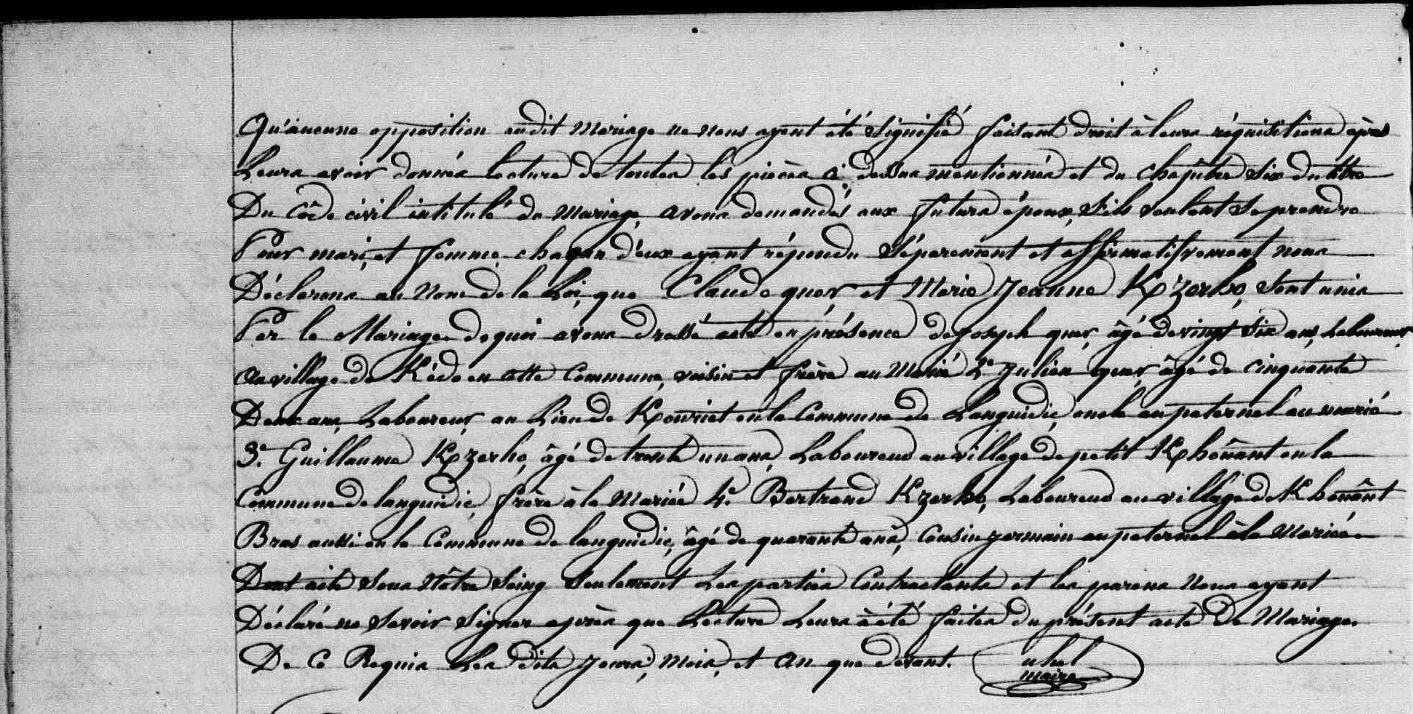 Qu'aucune opposition audit Mariage ne nous ayant été Signifié faisant droit à leurs réquisitions après
Leurs avoir données lecture de toutes les pièces ci dessus mentionnés et du chapitre Six du titre
Du Côde civil intitulé du Mariage avons demandés aux futurs époux, S'ils veulent Se prendre
Pour mari, et femme, chaqun d'eux ayant répondu Séparement et affirmatifvement nous
Déclarons au Nom de la Loi, que Claude quer et Marie Jeanne Kzerho, Sont unis
Par le Mariage, de quoi avons dressé acte en présence de joseph quer, âgé de vingt Six ans, Laboureur
au village de Kédo en cette Commune, voisin et frère au Marié 2.e Julien quer, âgé de cinquante
Deux ans, Laboureur au Lieu de Kouriet en la Commune de Languidic, oncle au paternel au marié
3.e Guillaume Kzerho, âgé de trente un ans, Laboureur au village de petit K honânt en la
Commune de languidic frère à la Mariée 4.e Bertrand Kzerho, Laboureur au village de K honânt
Bras aussi en la Commune de languidic, âgé de quarante ans, Cousin germain au paternel à la Mariée
Dont acte Sous Nôtre Seing Seulement Les parties Contractants et les parens Nous ayant
Déclaré ne Savoir Signer après que Lecture Leurs à été faites du présent acte De Mariage.
De Ce Requis Les dits Jours, Mois, et An que devant. uhel
maire